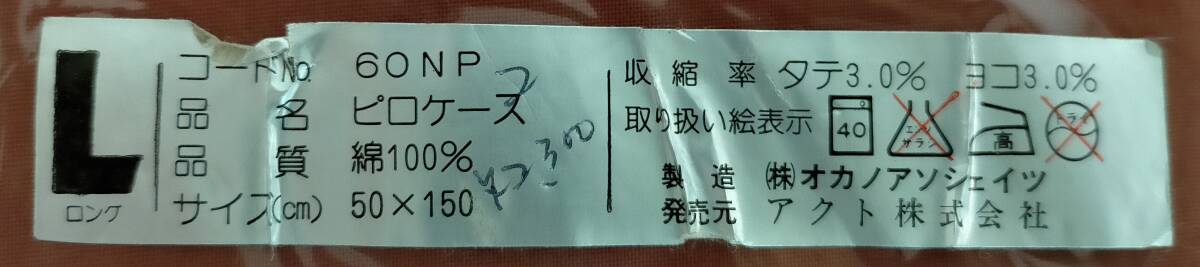 L
ロング
コードNo. 60NP
品名 ピロケース
品質 綿100%
サイズ(cm) 50×150
¥2300
収縮率 タテ3.0% ヨコ3.0%
取り扱い絵表示 40 エンソサラシ 高 ドライ
製造 (株)オカノアソシェイツ
発売元 アクト株式会社